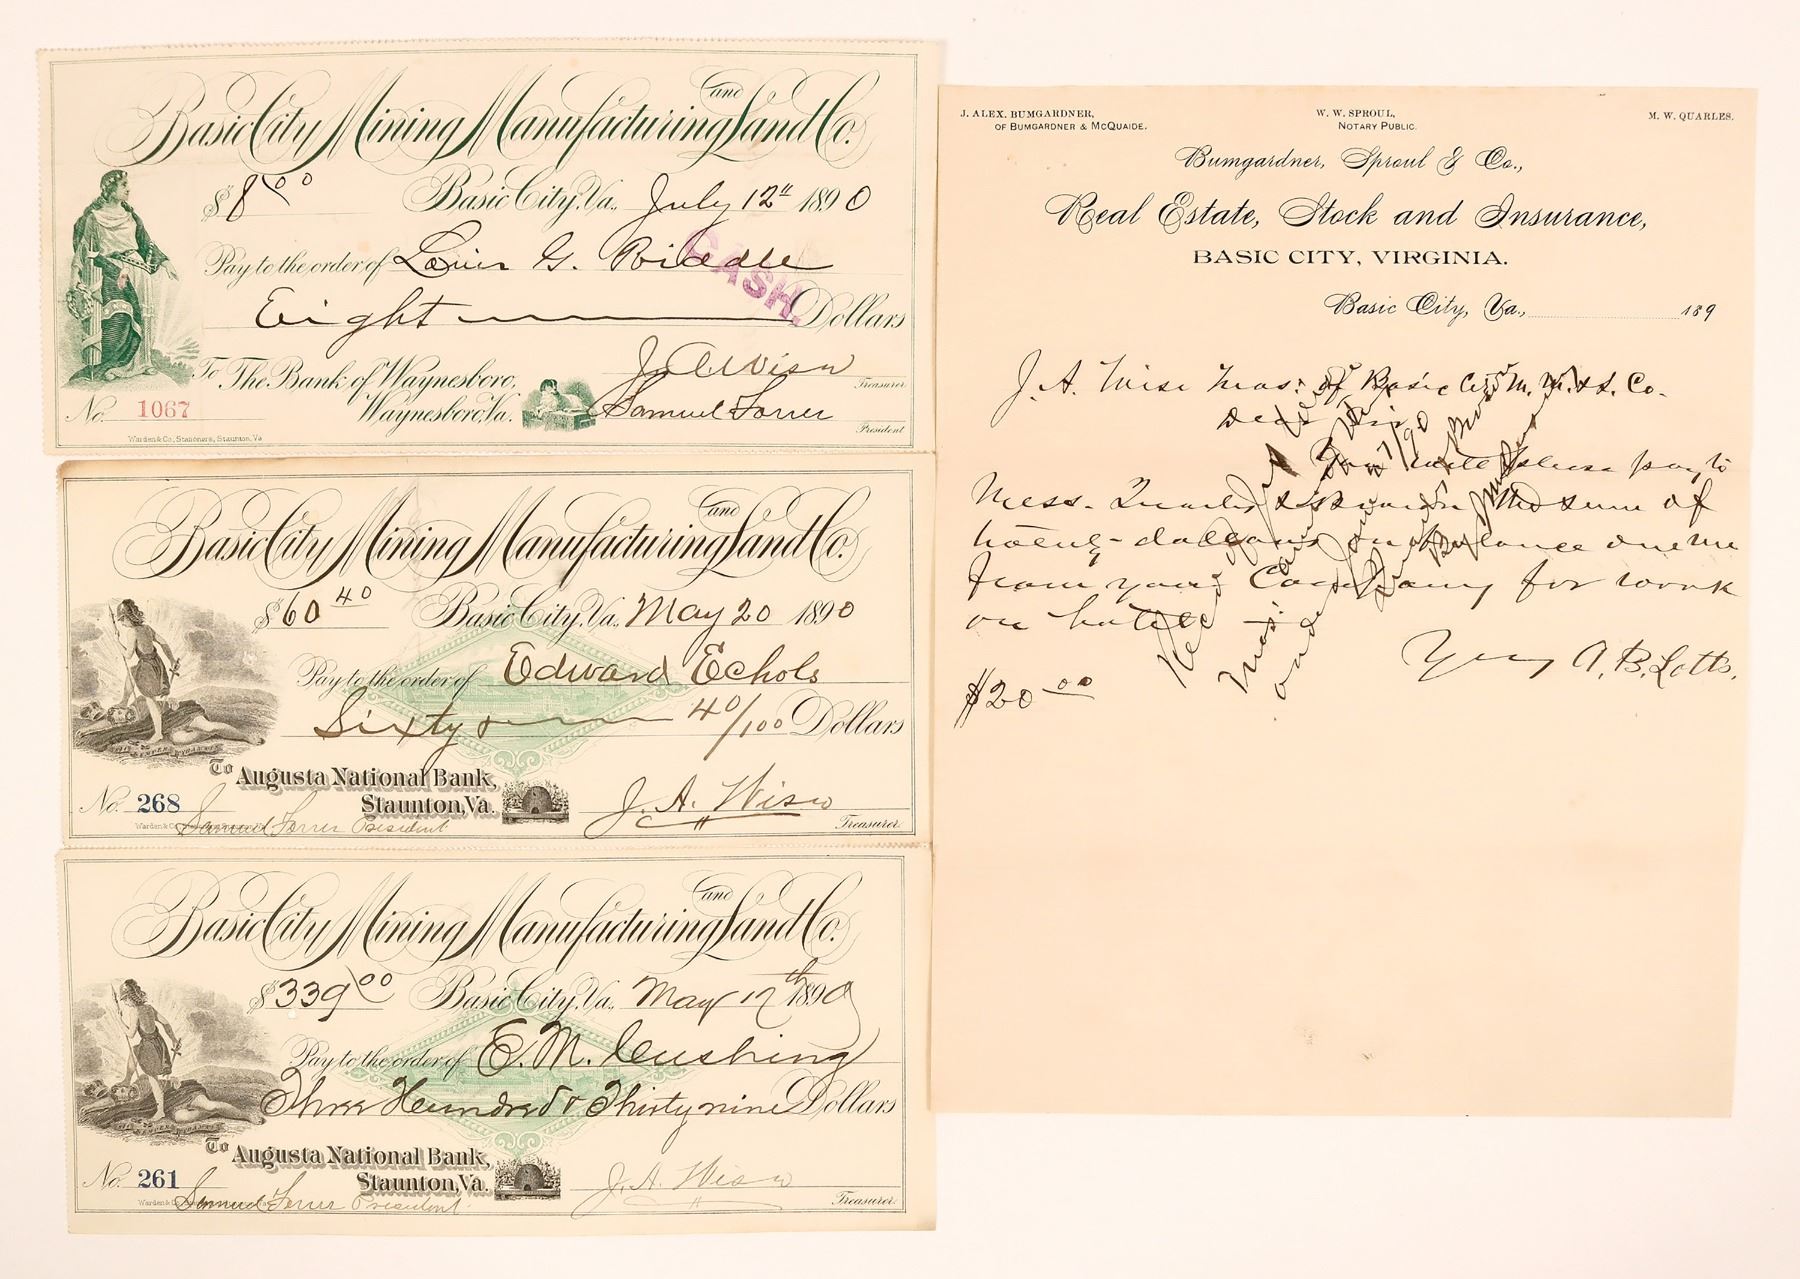 Basic City Mining Manufacturing and Land Co.
$ 8 00 Basic City, Va., July 12" 1890
Pay to the order of Louis G. Riddle
CASH.
Eight Dollars
To The Bank of Waynesboro,
Waynesboro, Va.
J A Wise
Treasurer
Samuel Forrer
President
No. 1067
Warden & Co., Stationers, Staunton, Va
Basic City Mining Manufacturing and Land Co.
$ 60 40 Basic City, Va., May 20 1890
Pay to the order of Edward Echols
Sixty & 40/100 Dollars
SIC SEMPER TYRANNIS
To Augusta National Bank,
Staunton, Va.
No. 268
J. A. Wise
Treasurer.
Samuel Forrer President
Basic City Mining Manufacturing and Land Co.
$ 339 00 Basic City, Va., May 17th 1890
Pay to the order of E. M. Cushing
Three Hundred & Thirty nine Dollars
SIC SEMPER TYRANNIS
To Augusta National Bank,
Staunton, Va.
No. 261
J. A. Wise
Treasurer.
Samuel Forrer President
J. ALEX. BUMGARDNER,
OF BUMGARDNER & McQUAIDE.
W. W. SPROUL,
NOTARY PUBLIC.
M. W. QUARLES.
Bumgardner, Sproul & Co.,
Real Estate, Stock and Insurance,
BASIC CITY, VIRGINIA.
Basic City, Va., 189
J. A. Wise Treas: of Basic City M. M. & L. Co.
Dear Sir
You will please pay to
Mess. Quarles & the sum of
twenty dollars on balance due me
from your Company for work
on hotel
Yours A. B. Lotts.
$20 00
Recd of J A Wise